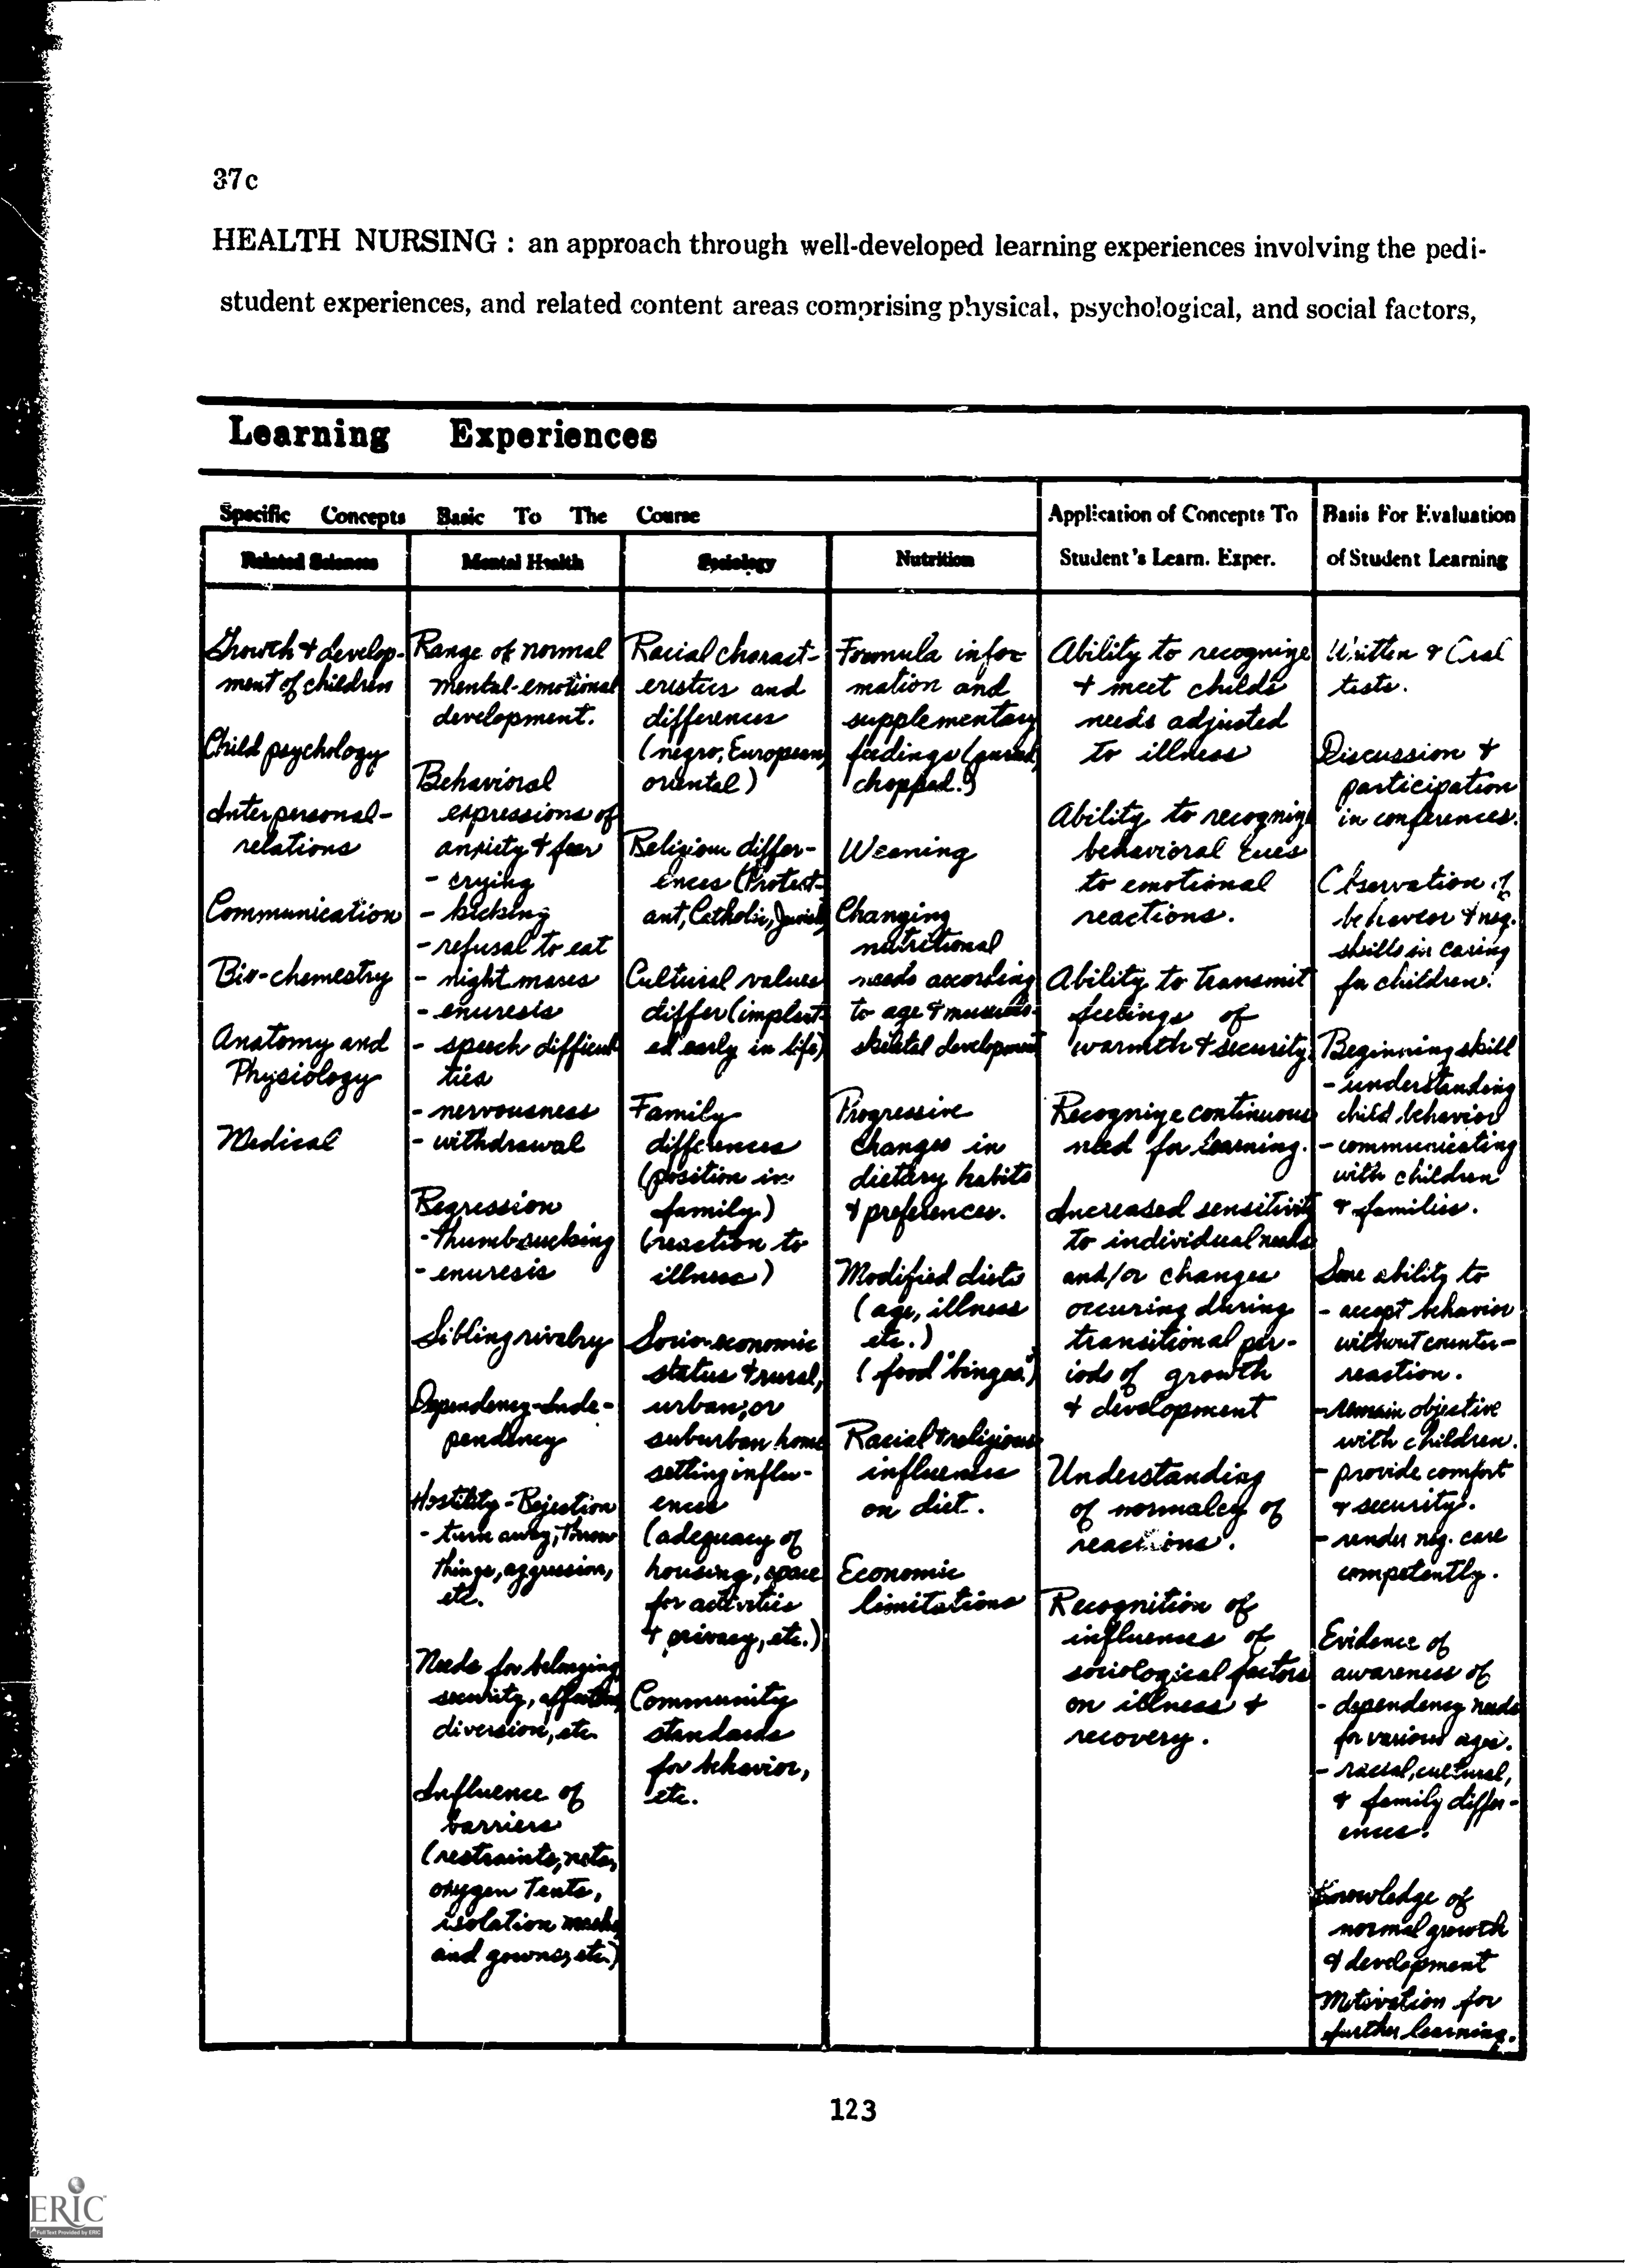 37c
HEALTH NURSING : an approach through well-developed learning experiences involving the pedi-
student experiences, and related content areas comprising physical, psychological, and social factors,
Learning Experiences
Specific Concepts Basic To The Course
Related Sciences
Growth & develop-
ment of children
Child psychology
Interpersonal-
relations
Communication
Bio-chemestry
Anatomy and
Physiology
Medical
Mental Health
Range of normal
mental-emotional
development.
Behavioral
expressions of
anxiety & fear
- crying
- kicking
- refusal to eat
- night mares
- enuresis
- speech difficul
ties
- nervousness
- withdrawal
Regression
- thumb-sucking
- enuresis
Sibling rivalry
Dependency-Inde-
pendency
Hostility-Rejection
- turn away, throw
things, aggression,
etc.
Needs for belonging
security, affection,
diversion, etc.
Influence of
barriers
(restraints, nets,
oxygen tents,
isolation masks
and gowns, etc.)
Sociology
Racial charact-
eristics and
differences
(negro, European,
oriental)
Religious differ-
ences (Protest-
ant, Catholic, Jewish)
Cultural values
differ (implant-
ed early in life)
Family
differences
(position in
family)
(reaction to
illness)
Socio-economic
status & rural,
urban, or
suburban home
setting influ-
ences
(adequacy of
housing, space
for activities
& privacy, etc.)
Community
standards
for behavior,
etc.
Nutrition
Formula infor
mation and
supplementary
feedings (pureed,
chopped.)
Weaning
Changing
nutritional
needs according
to age & musculo-
skeletal development
Progressive
changes in
dietary habits
& preferences.
Modified diets
(age, illness
etc.)
(food "binges")
Racial & religious
influences
on diet.
Economic
limitations
Application of Concepts To
Student's Learn. Exper.
Ability to recognize
& meet childs
needs adjusted
to illness
Ability to recognize
behavioral cues
to emotional
reactions.
Ability to transmit
feelings of
warmth & security.
Recognize continuous
need for learning.
Increased sensitivity
to individual needs
and/or changes
occuring during
transitional per-
iods of growth
& development
Understanding
of normalcy of
reactions.
Recognition of
influences of
sociological factors
on illness &
recovery.
Basis For Evaluation
of Student Learning
Written & Oral
tests.
Discussion &
participation
in conferences.
Observation of
behavior & nsg.
skills in caring
for children.
Beginning skill
- understanding
child behavior
- communicating
with children
& families.
Some ability to
- accept behavior
without counter-
reaction.
- remain objective
with children.
- provide comfort
& security.
- render nsg. care
competently.
Evidence of
awareness of
- dependency needs
for various ages.
- racial, cultural,
& family differ-
ences.
Knowledge of
normal growth
& development
Motivation for
further learning.
123
ERIC
Full Text Provided by ERIC